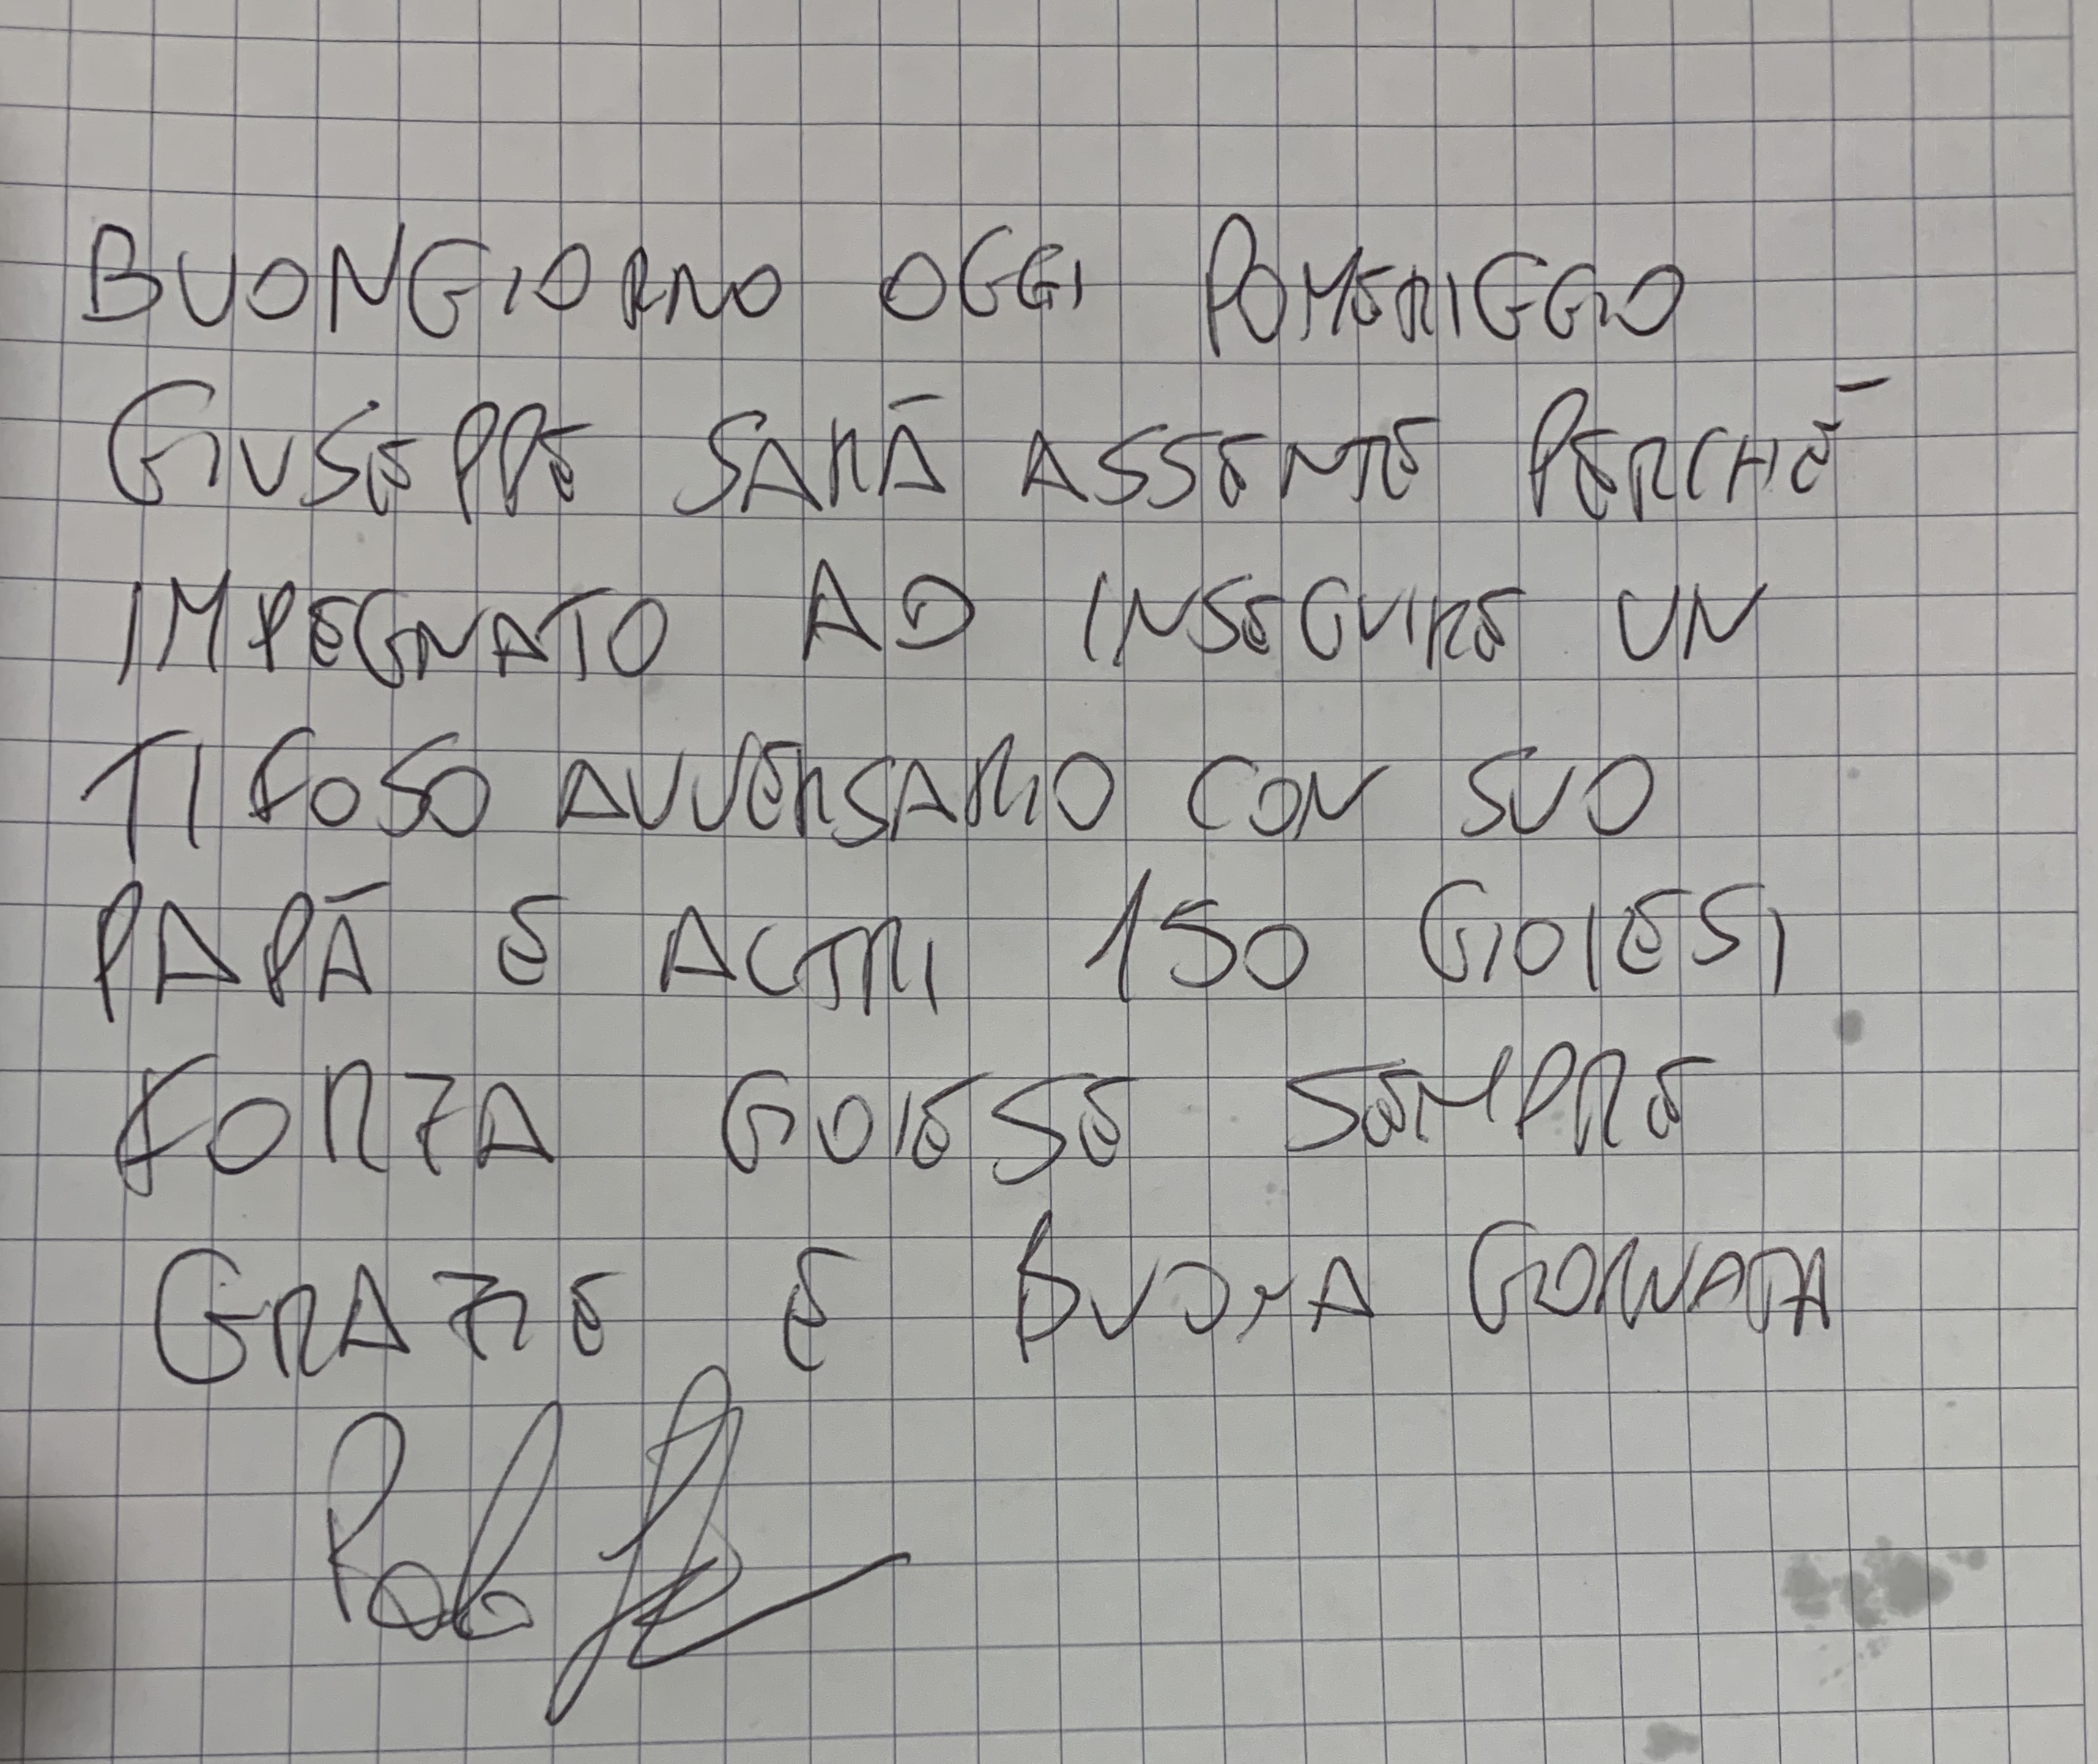 BUONGIORNO OGGI POMERIGGIO
GIUSEPPE SARÀ ASSENTE PERCHÉ
IMPEGNATO AD INSEGUIRE UN
TIFOSO AVVERSARIO CON SUO
PAPÀ E ALTRI 150 GIOIESI
FORZA GIOIESE SEMPRE
GRAZIE E BUONA GIORNATA